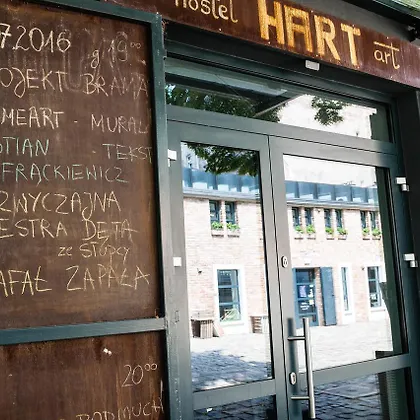 hostel HART art
7.2016 g 19:00
OJEKT BRAMA
MEART - MURAL
TIAN - TEKST
FRĄCKIEWICZ
ZWYCZAJNA
ESTRA DĘTA
ze Słupcy
AFAŁ ZAPAŁA
20:00
PODMUCH